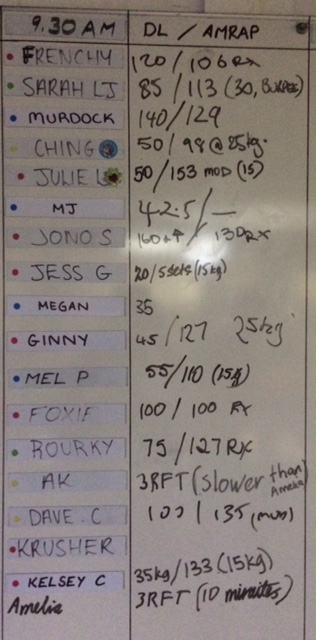 9.30 AM DL / AMRAP
FRENCHY 120 / 106 RX
SARAH LJ 85 / 113 (30, BURPEE)
MURDOCK 140/129
CHING 50 / 98 @ 25kg.
JULIE L 50 / 153 MOD (15)
MJ 42.5 / —
JONO S / 130RX
JESS G 20/5sets (15kg)
MEGAN 35
GINNY 45 / 127 25kg
MEL P 55/110 (15kg)
FOXIE 100 / 100 RX
ROURKY 75 / 127 RX
AK 3RFT (slower than Amelia)
DAVE . C 100 / 135
KRUSHER
KELSEY C 35kg/133 (15kg)
Amelia 3RFT (10 minutes)